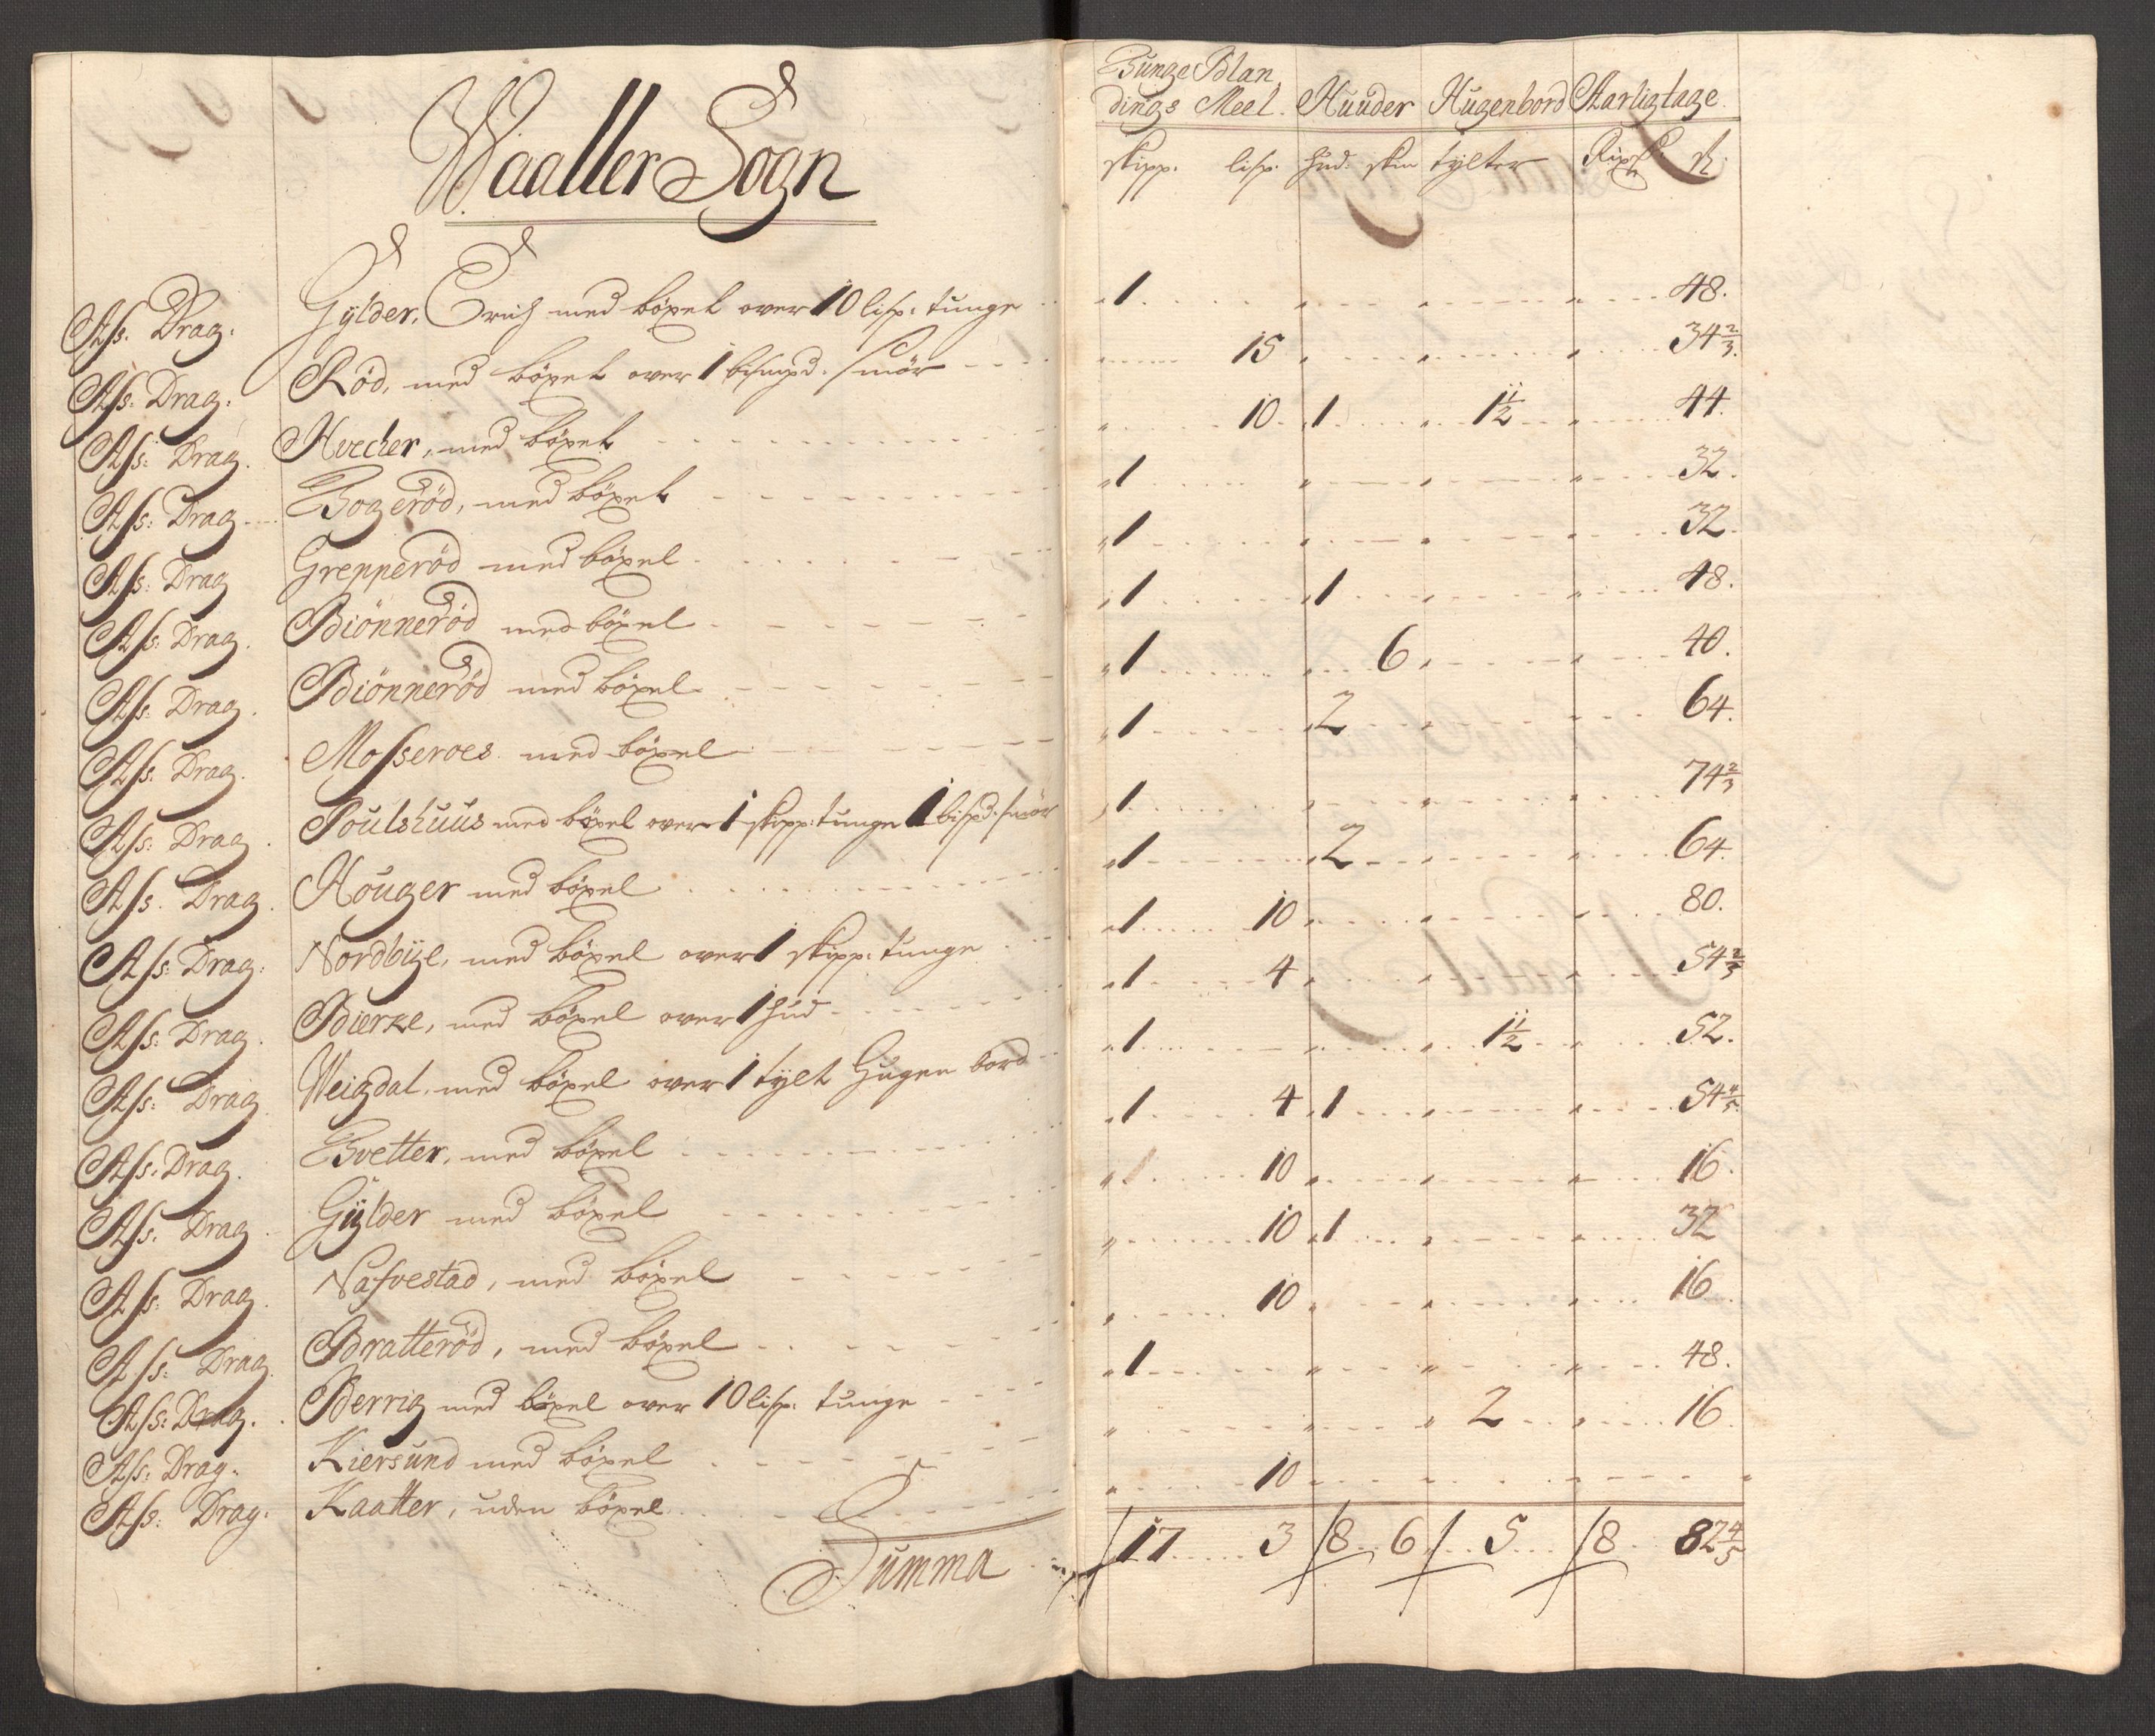 Waaller Sogn
Tunge Blan
dings Meel. Huuder Hugenbord Aarligtage.
skipp. lisp. hud: skin tylter Rixdr. sk:
Ass. Drag: Gylder, Erich med böxel over 10 lisp: tunge 1 48.
Ass: Drag: Röd, med böxel over 1 bismpd. smör 15 34 2/3.
Ass: Drag. Hvecher, med böxel 10 1 1 1/2 44.
Ass: Drag Bogeröd, med böxel 1 32.
Ass: Drag Grepperöd med böxel 1 32.
Ass: Drag. Biönneröd med böxel 1 1 48.
Ass: Drag. Biönneröd med böxel 1 6 40.
Ass: Drag. Mosseroes med böxel 1 2 64.
Ass: Drag. Poulshuus med böxel over 1 skipp: tunge 1 bispd: smör 1 74 2/3
Ass. Drag. Houger med böxel 1 2 64.
Ass: Drag: Nordbÿe, med böxel over 1 skipp: tunge 1 10 80.
Ass: Drag. Bierke, med böxel over 1 hud 1 4 54 2/3
Ass: Drag Weigdal, med böxel over 1 tylt Hugen bord 1 1 1/2 52.
Ass: Drag. Tvetter, med böxel 1 4 1 54 4/5.
Ass. Drag. Gÿlder med böxel 10 16.
Ass: Drag. Nafvestad, med böxel 10 1 32
Ass: Drag. Bratteröd, med böxel 10 16
Ass: Drag. Berrig med böxel over 10 lisp: tunge 1 48.
Ass: Drag. Kiersund med böxel 2 16.
Ass: Drag: Kaatter, uden böxel 10
Summa 17 3 8 6 5 8 82 4/5